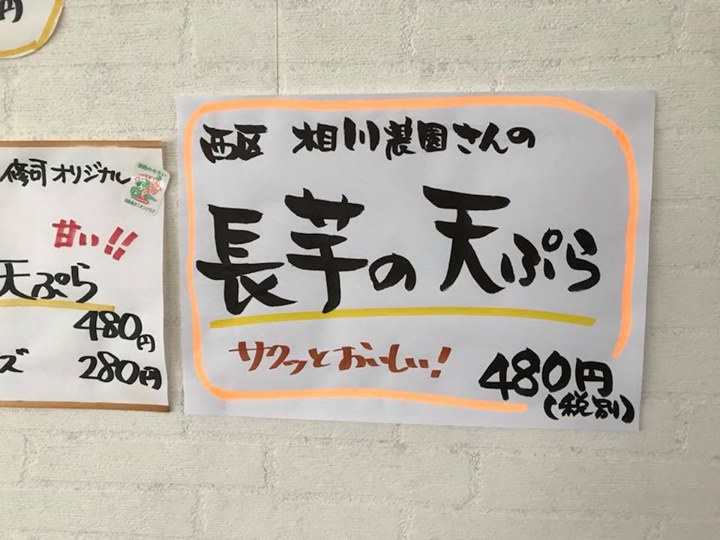 円
修司オリジナル
甘い!!
天ぷら
480円
ズ 280円
西区 相川農園さんの
長芋の天ぷら
サクっとおいしい!
480円
(税別)